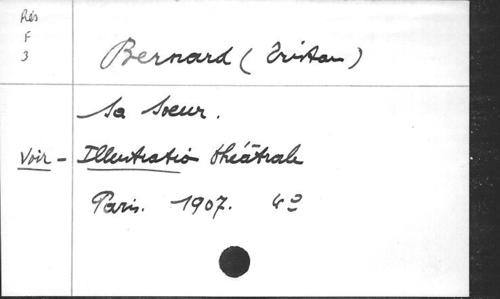 Rés
F
3
Bernard (Tristan)
Sa Soeur.
Voir - Illustratio théâtrale
Paris. 1907. 4º